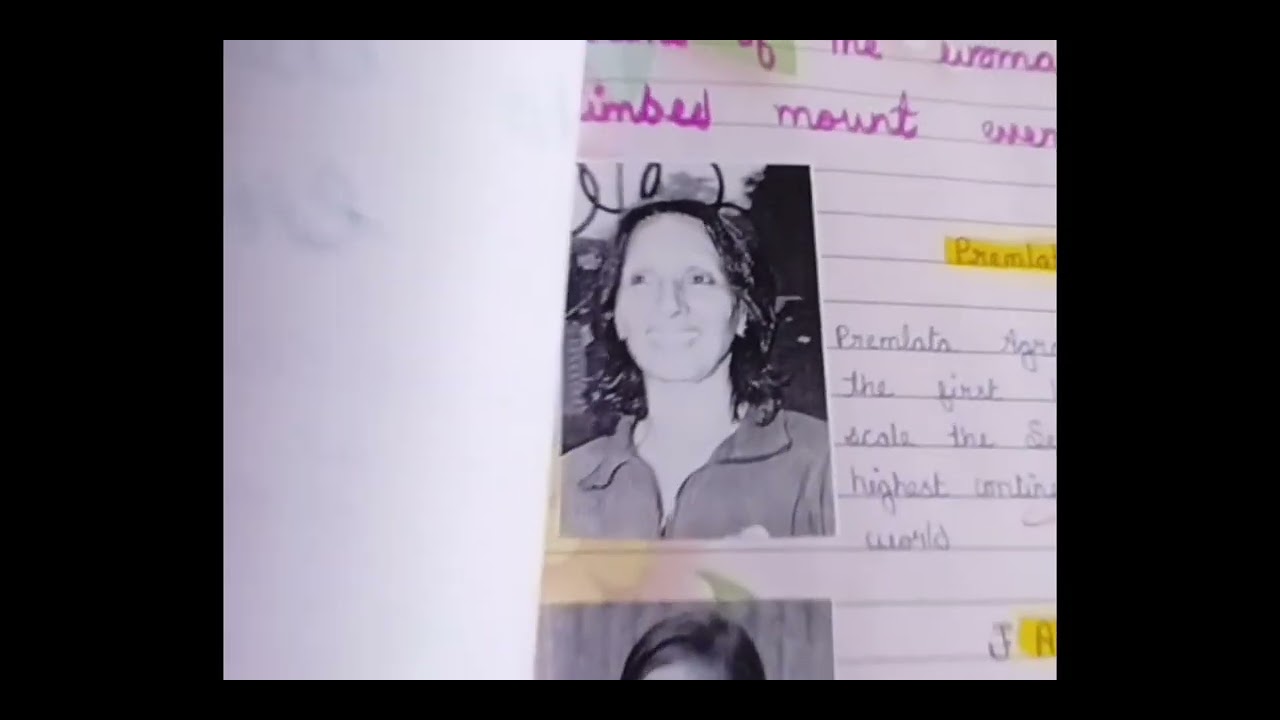 of the woma
imbed mount ever
Premlat
Premlata Agra
the first
scale the Se
highest contine
world
J A